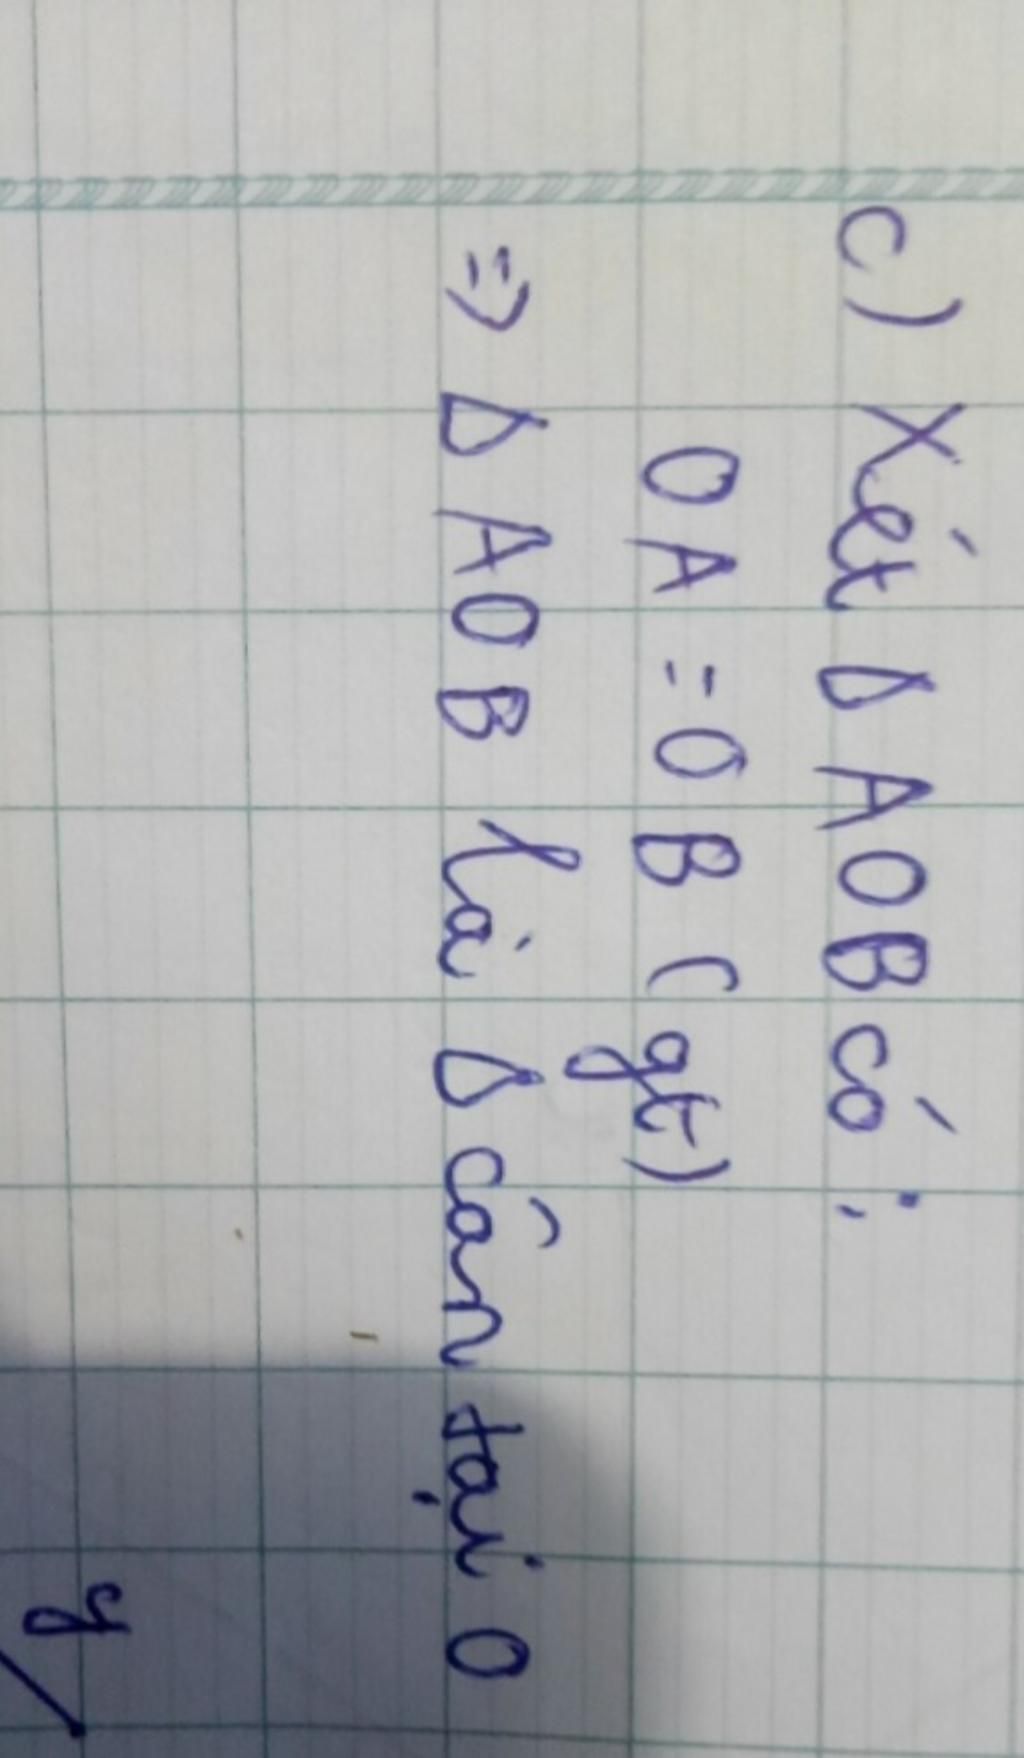 c) Xét Δ AOB có :
OA = OB (gt)
=> Δ AOB là Δ cân tại O
y